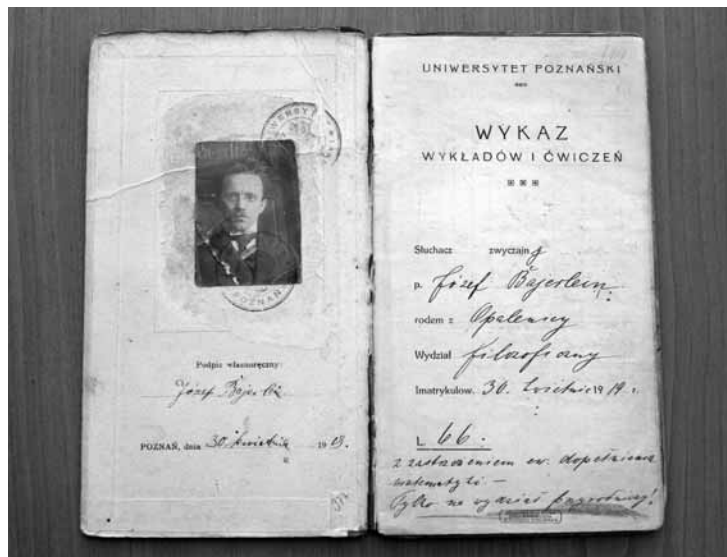 Podpis własnoręczny:
Józef Bajerlein
POZNAŃ, dnia 30. kwietnia 1919.
UNIWERSYTET POZNAŃSKI
WYKAZ
WYKŁADÓW I ĆWICZEŃ
Słuchacz zwyczajny
p. Józef Bajerlein
rodem z Opalenicy
Wydział filozoficzny
Imatrykulow. 30. kwietnia 1919 r.
L. 66.
z zastrzeżeniem ew. dopełnienia
matematyki —
Tylko na wydziel przyrodniczy!